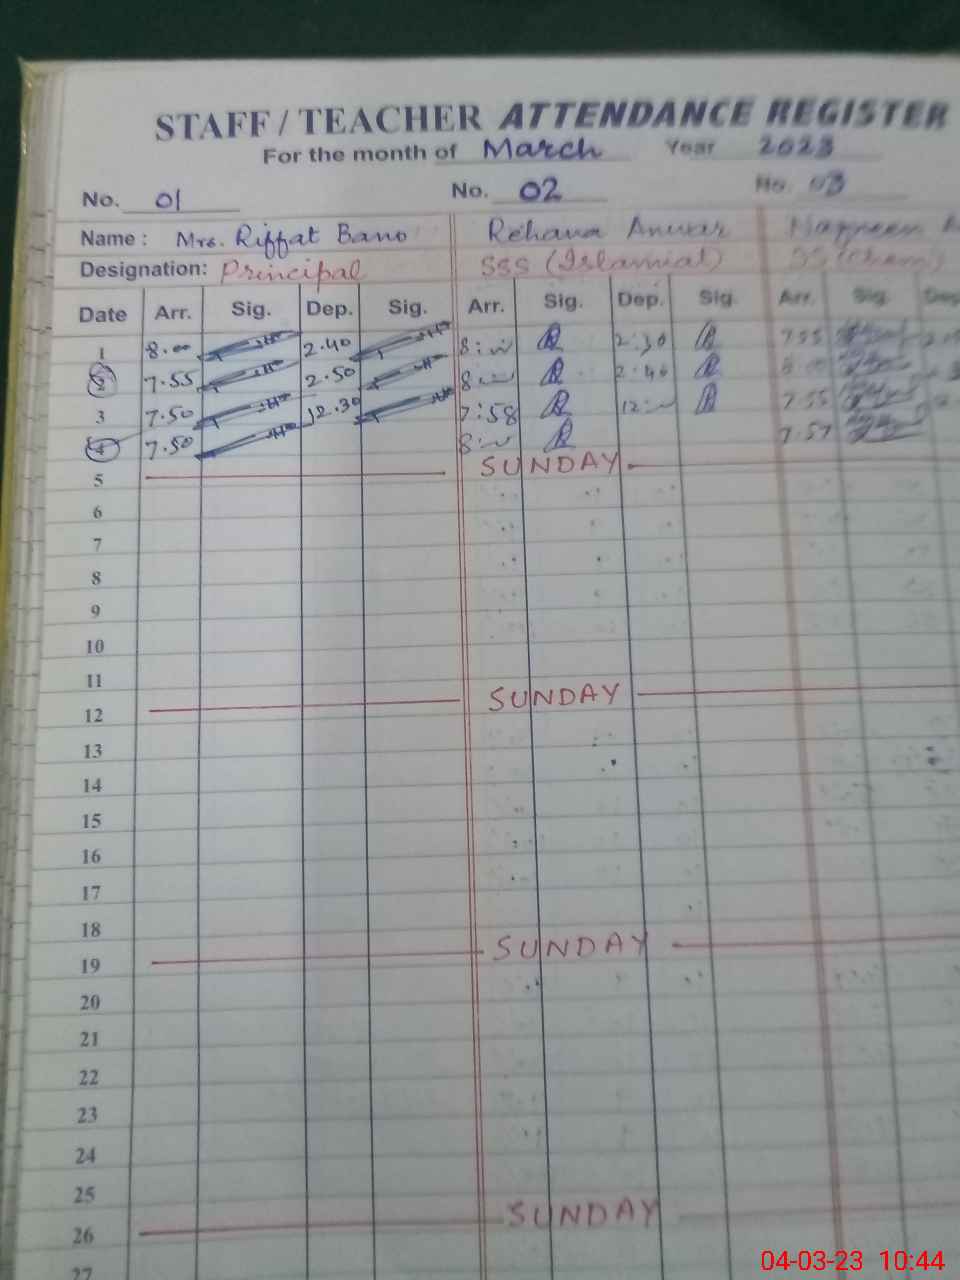 STAFF / TEACHER ATTENDANCE REGISTER
For the month of March Year 2023
No. 01 No. 02 No. 03
Name : Mrs. Riffat Bano Rehana Anwar
Designation: Principal SSS (Islamiat)
Date Arr. Sig. Dep. Sig. Arr. Sig. Dep. Sig. Arr. Sig. Dep
1 8.00 2.40 2:30 7 55
2 7.55 2.50 2:40
3 7.50 12.30 7:58 7 55
4 7.50 7.57
5 SUNDAY
6
7
8
9
10
11
12 SUNDAY
13
14
15
16
17
18
19 SUNDAY
20
21
22
23
24
25
26 SUNDAY
27
04-03-23 10:44